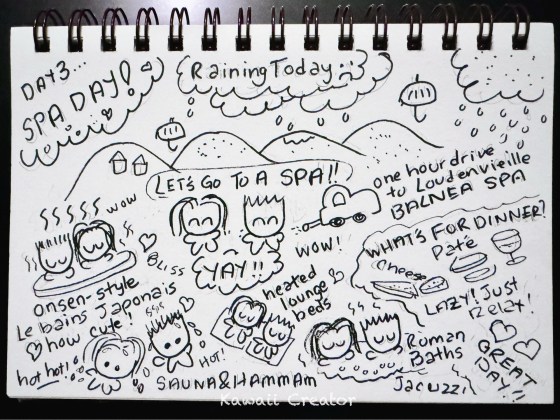 DAY 3...
SPA DAY!
Raining Today
LET'S GO TO A SPA!!
one hour drive
to Loudenvieille
BALNEA SPA
WOW
BLISS
YAY!!
WOW!
WHAT'S FOR DINNER?
Pate
Cheese
LAZY! Just
Relax!
onsen-style
Le bains Japonais
how cute!
heated
lounge
beds
hot hot!
HOT!
SAUNA & HAMMAM
Roman
Baths
Jacuzzi
GREAT
DAY!!
Kawaii Creator